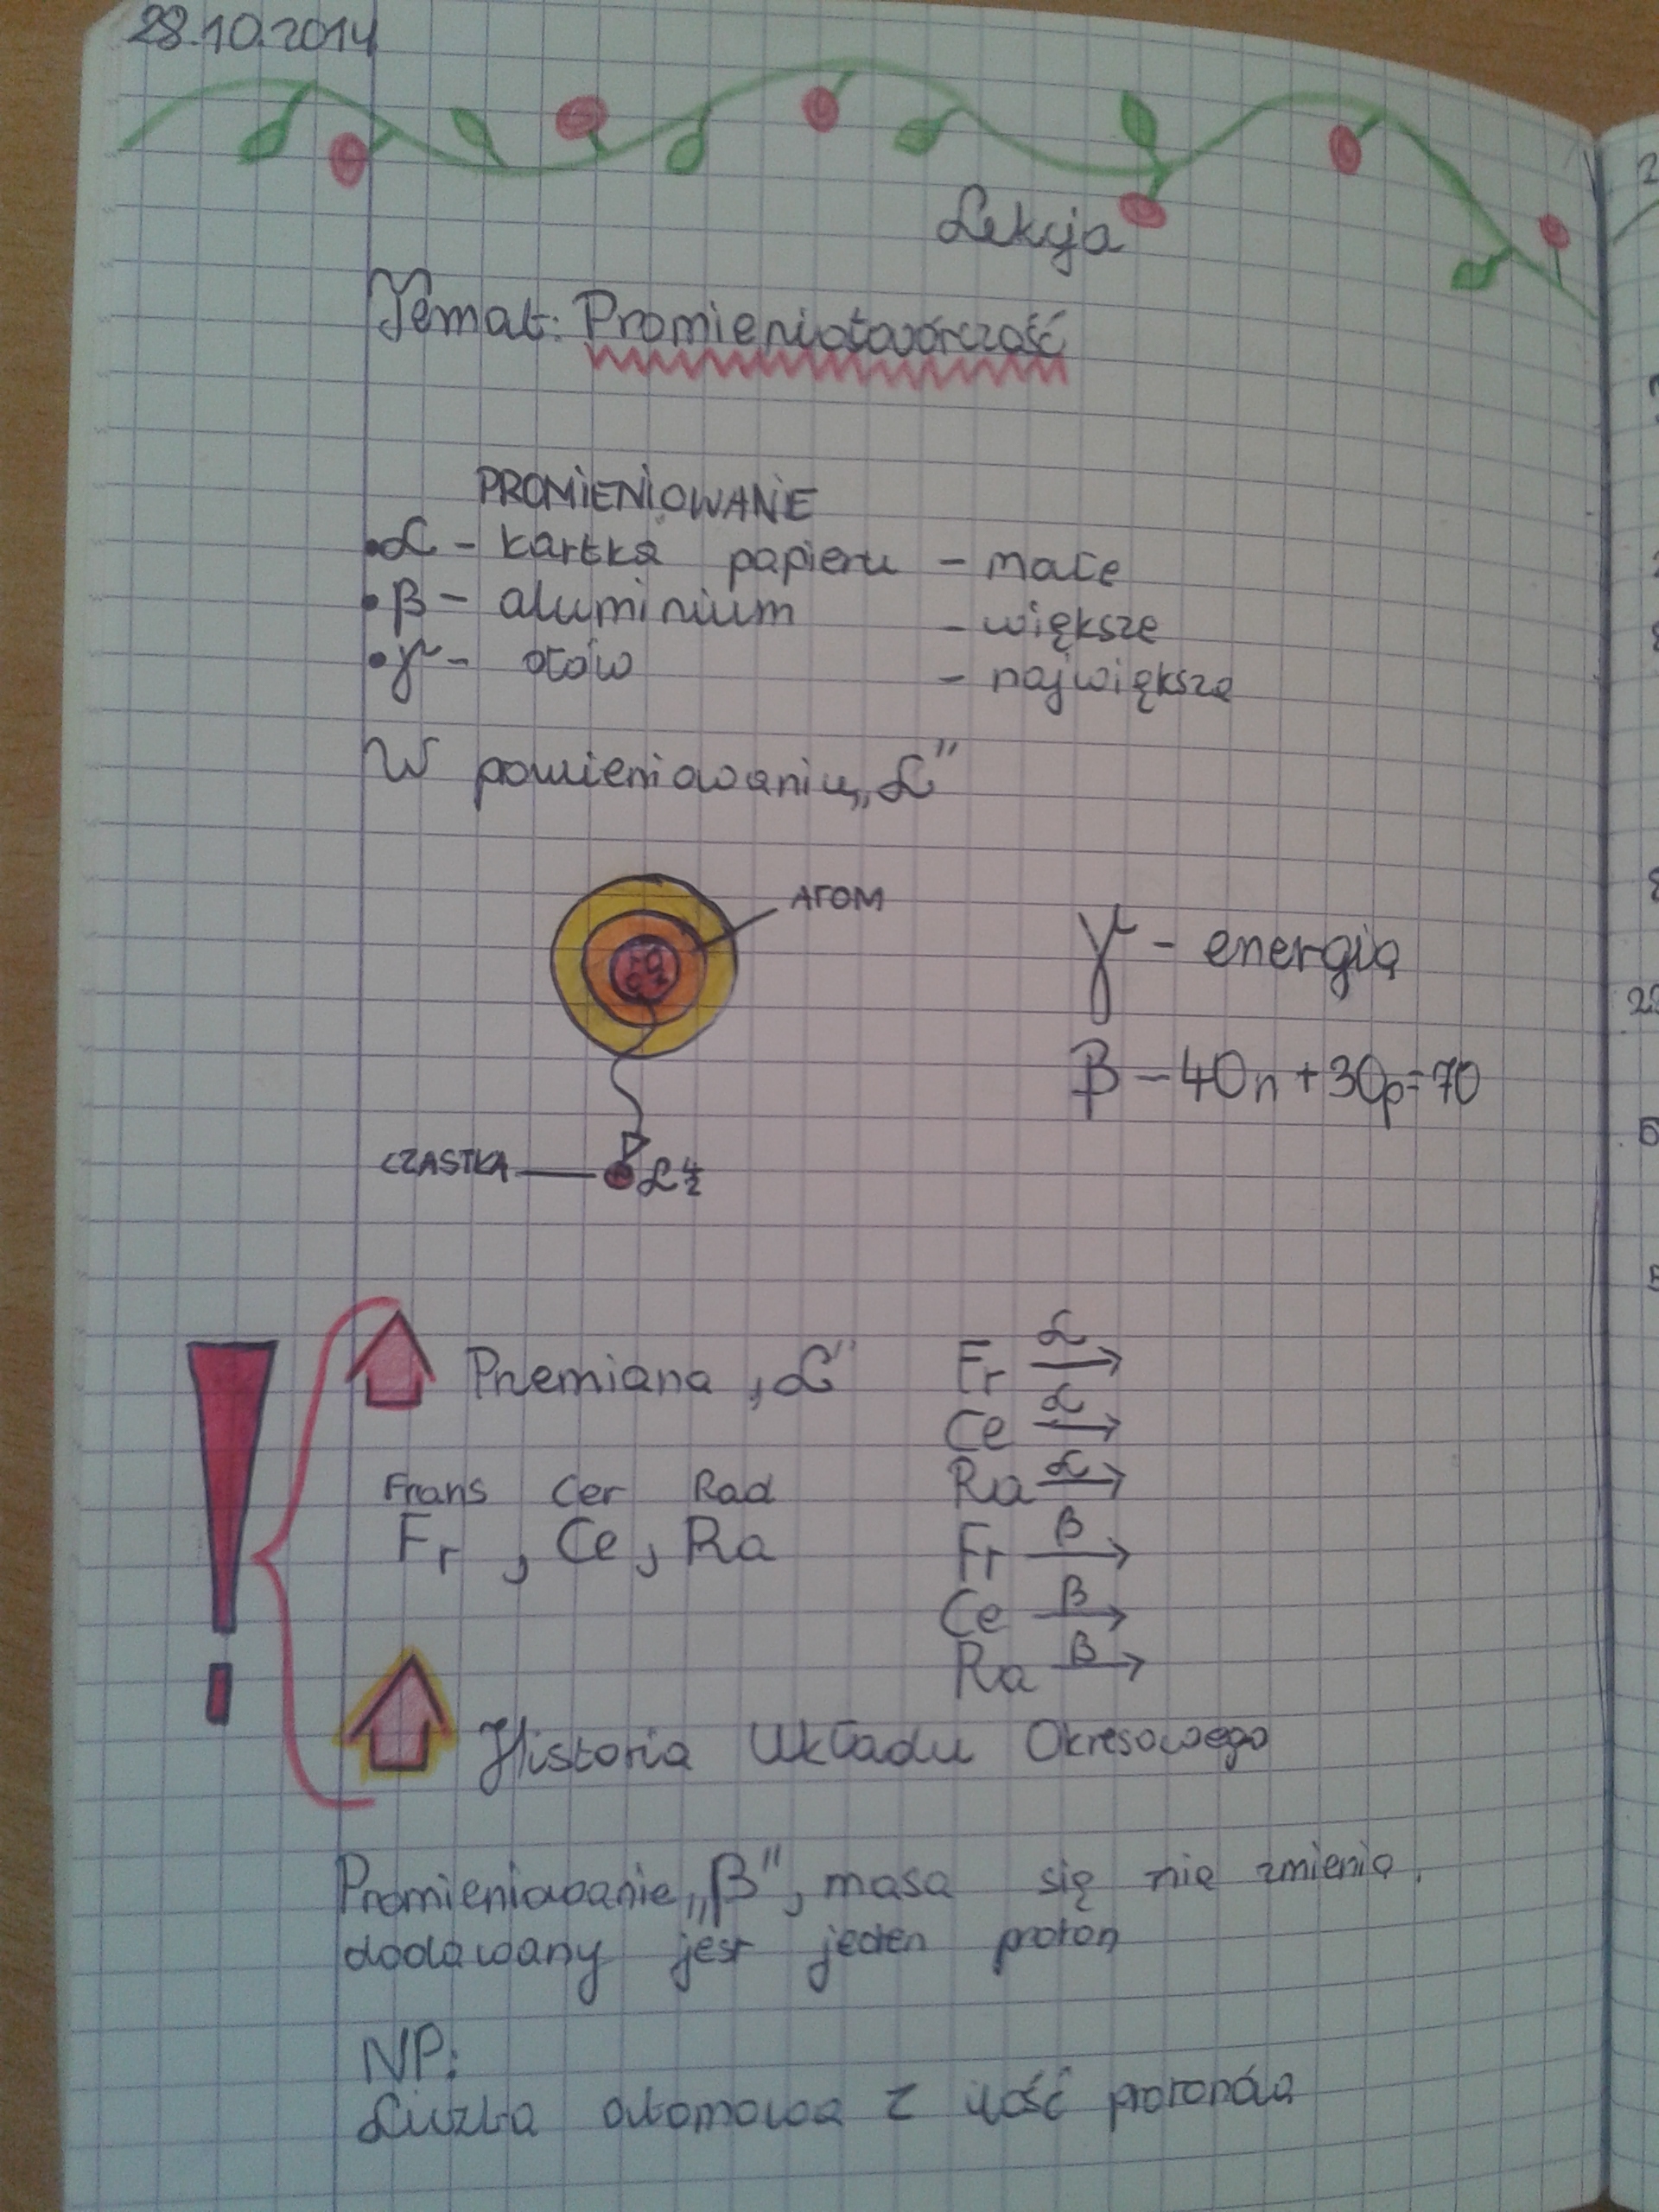 28.10.2014
Lekcja
Temat: Promieniotwórczość
PROMIENIOWANIE
• α - kartka papieru - małe
• β - aluminium - większe
• γ - ołów - największe
W pomieniowaniu „α"
ATOM
γ - energia
β - 40n + 30p = 70
CZASTKA α 4 2
Przemiana „α"
Frans Cer Rad
Fr, Ce, Ra
Fr α →
Ce α →
Ra α →
Fr β →
Ce β →
Ra β →
Historia Układu Okresowego
Promieniowanie „β", masa się nie zmienia,
dodawany jest jeden proton
NP:
Liczba atomowa Z ilość protonów